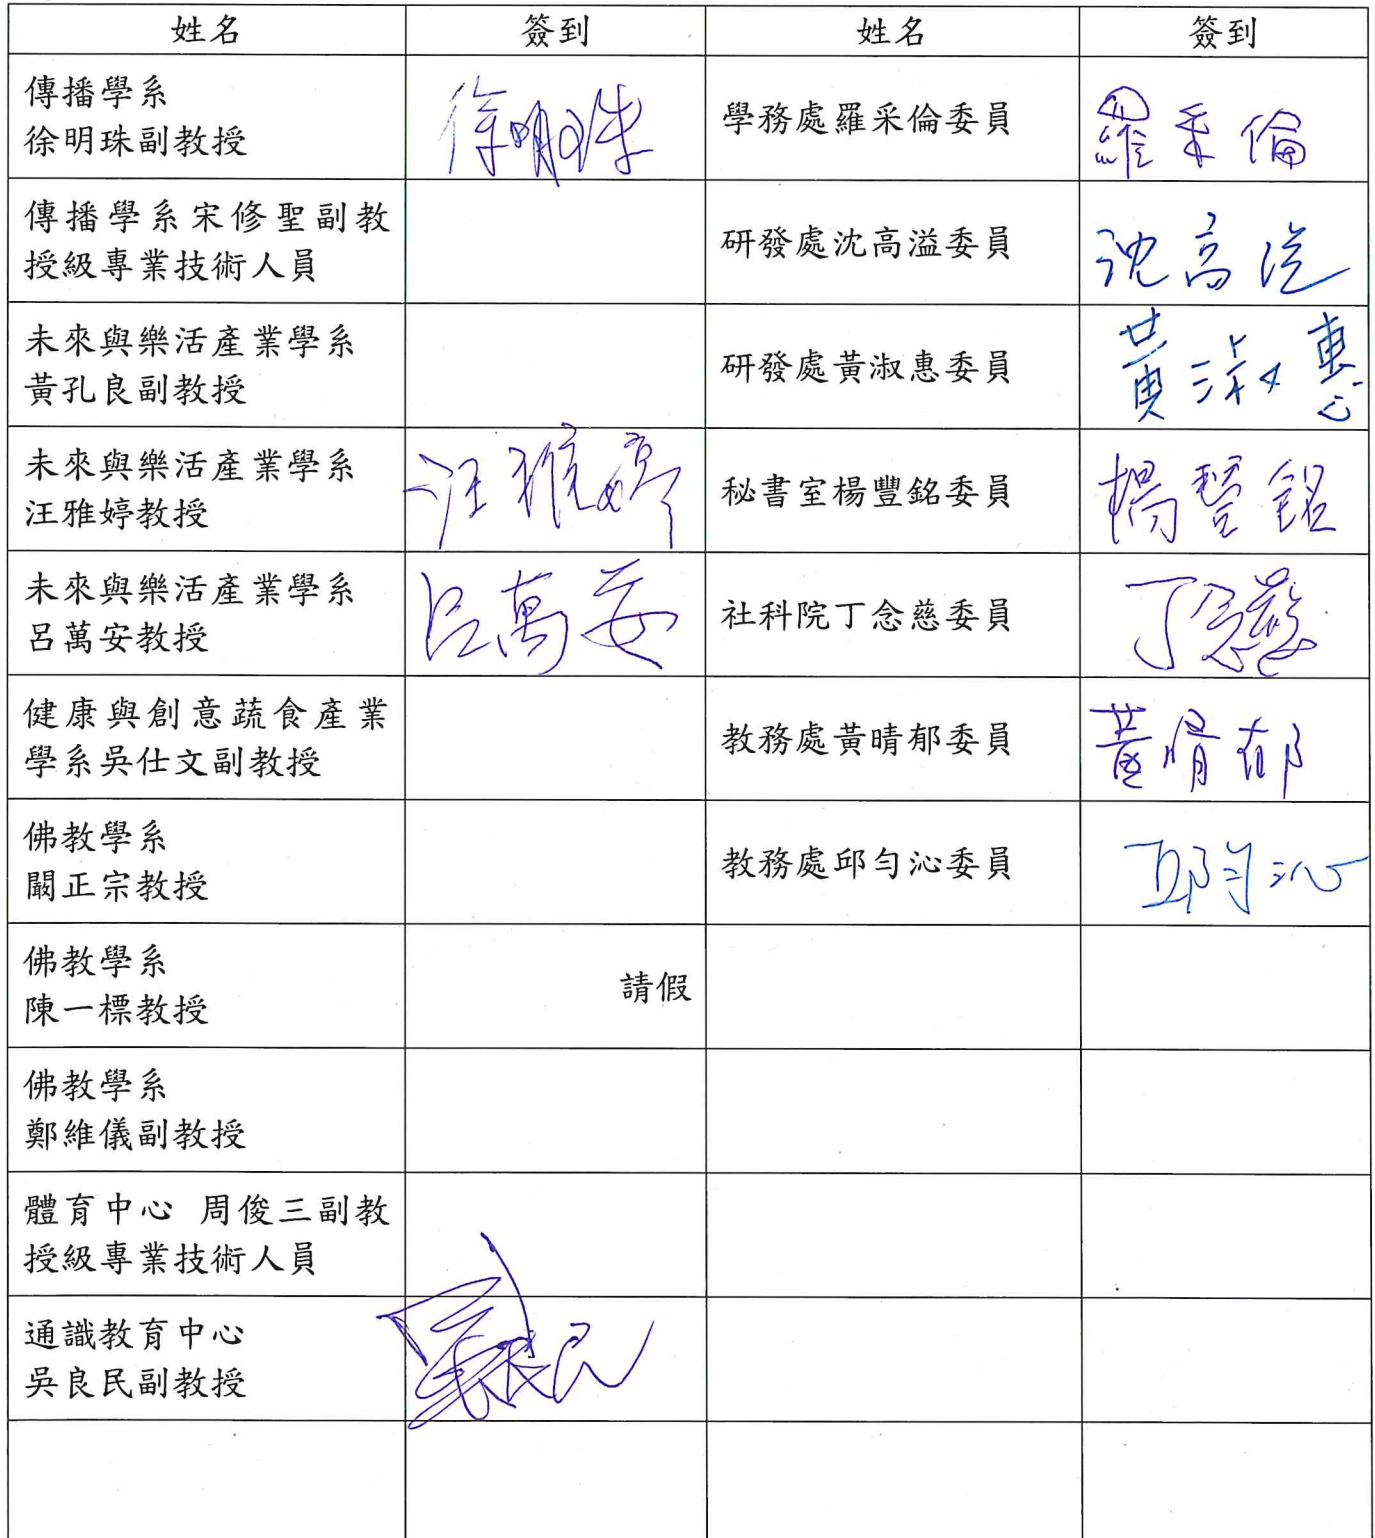 姓名 簽到 姓名 簽到
傳播學系
徐明珠副教授
徐明珠
學務處羅采倫委員
羅采倫
傳播學系宋修聖副教
授級專業技術人員
研發處沈高溢委員
沈高溢
未來與樂活產業學系
黃孔良副教授
研發處黃淑惠委員
黃淑惠
未來與樂活產業學系
汪雅婷教授
汪雅婷
秘書室楊豐銘委員
楊豐銘
未來與樂活產業學系
呂萬安教授
呂萬安
社科院丁念慈委員
丁念慈
健康與創意蔬食產業
學系吳仕文副教授
教務處黃晴郁委員
黃晴郁
佛教學系
闞正宗教授
教務處邱勻沁委員
邱勻沁
佛教學系
陳一標教授
請假
佛教學系
鄭維儀副教授
體育中心 周俊三副教
授級專業技術人員
通識教育中心
吳良民副教授
吳良民